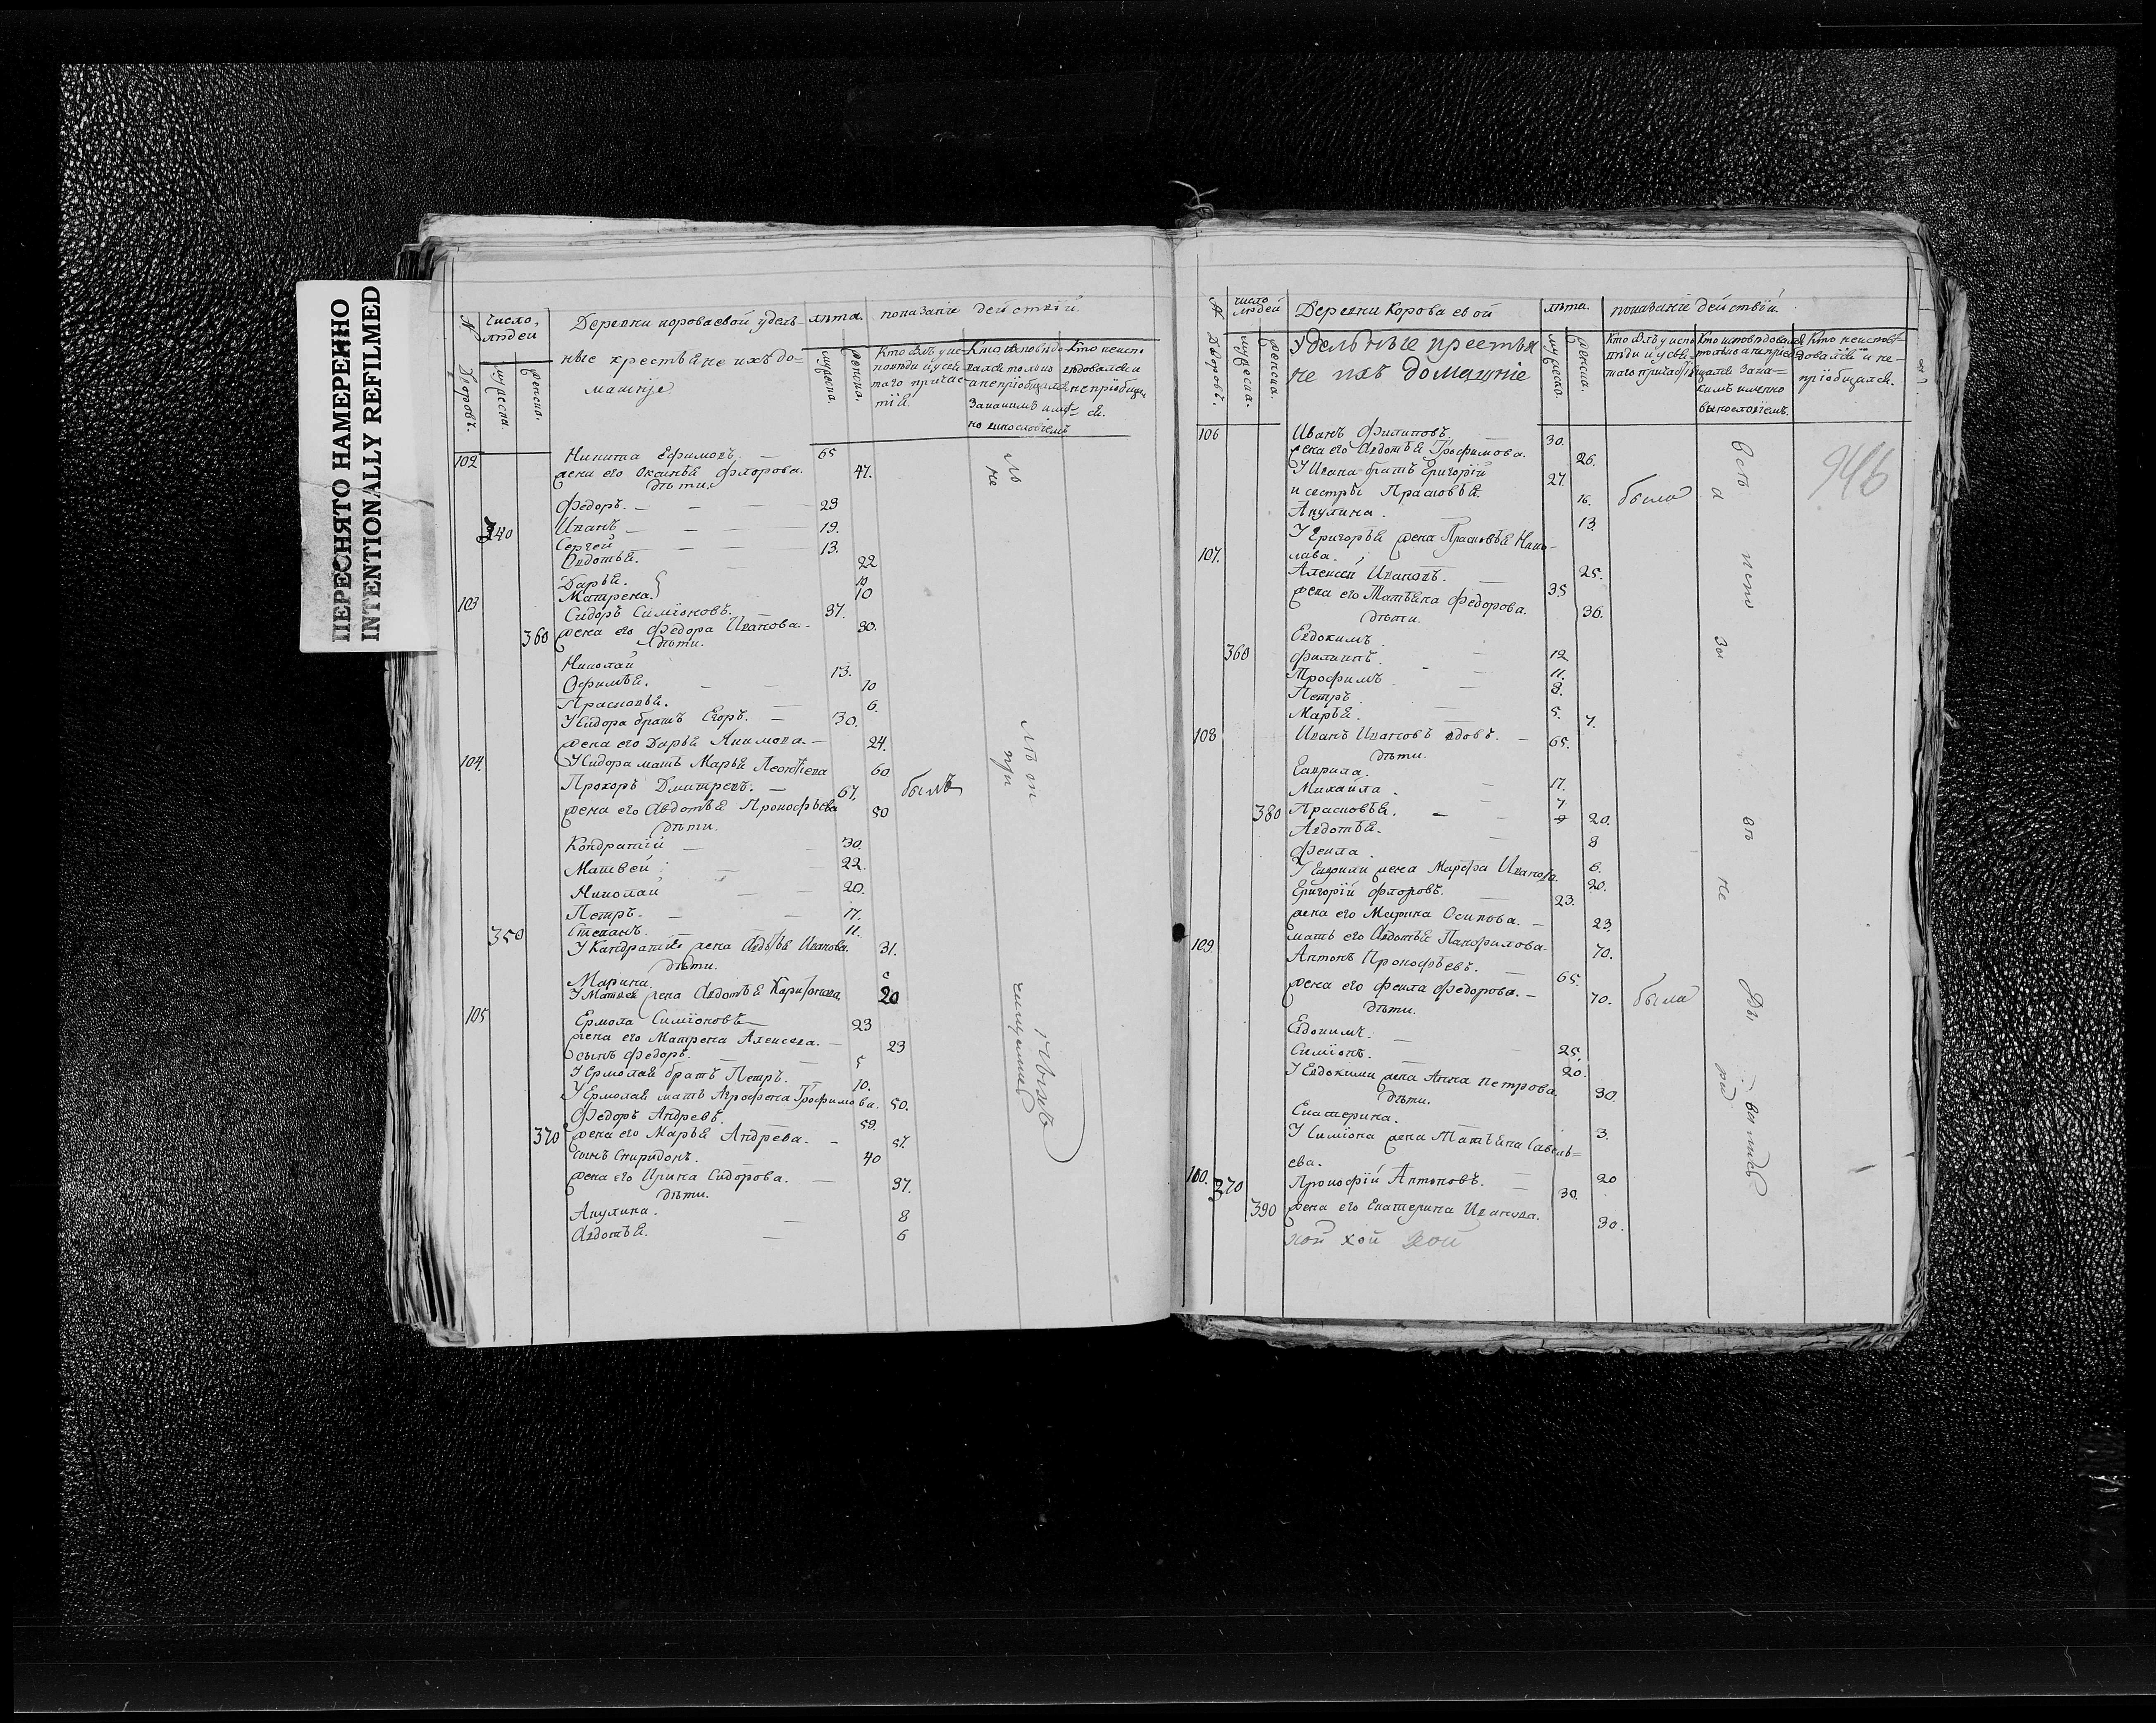 ПЕРЕСНЯТО НАМЕРЕННО
INTENTIONALLY REFILMED
№ Дворовъ.
число людей
Деревни короваевой удель-
лѣта.
показаніе действій.
мужеска. женска.
ные крестьяне ихъ до=
машнiе
мужеска. женска.
Кто былъ у ис-
повѣди и у свя-
таго причас-
тія.
Кто исповѣдо
вался только
а непріобщался
за какимъ имян-
но винословіемъ
Кто неиспо
ведовался и
непріобщал
ся.
102 Никита Ефимовъ. — 65
жена его Оксинья Флорова. 47.
дѣти.
Федоръ. — 23
340 Иванъ — 19.
Сергей — 13.
Овдотья. 22
Дарья. 10
Матрена. 10
103 Сидоръ Симіоновъ. 37.
360 жена его Федора Иванова. — 30.
дѣти.
Николай 13.
Офимья. 10
Прасковья. 6.
У Сидора братъ Егоръ. — 30.
жена его Дарья Акимова. — 24.
У Сидора мать Марья Леонтіева 60
104. Прохоръ Дмитревъ. — 67. былъ
жена его Авдотья Прокофьева 50
дѣти.
Кондратій — 30.
Матвей 22.
Николай 20.
Петръ. — 17.
350 Степанъ. — 11.
У Кандратия жена Авдотья Иванова. 31.
дѣти.
Марина.
У Матвея жена Авдотья Харитонова 20
105 Ермола Симіоновъ 23
жена его Матрена Алексева. — 23
сынъ Федоръ. 5
У Ермолая братъ Петръ. 10.
У Ермолая мать Агрофена Трофимова. 50.
Федоръ Андревъ. 59.
370 жена его Марья Андрева. — 57.
сынъ Спиридонъ. 40
жена его Ирина Сидорова. — 37.
дѣти.
Акулина. 8
Авдотья. 6
№ Дворовъ.
число людей
Деревни Коровае вой
лѣта.
показаніе действій.
мужеска. женска.
Удельные крестья
не ихъ домашніе
мужеска. женска.
946
106 Иванъ Филиповъ — 30.
жена его Авдотья Трофимова. 26.
У Ивана братъ Григорій 27.
и сестры Прасковья. 16. была
Акулина. 13.
У Григорья жена Прасковья Нико-
лава. 25.
107. Алексей Ивановъ. — 35
жена его Татьяна Федорова. 36.
дѣти.
Евдокимъ 12
360 Филиппъ. 11.
Трофимъ 8.
Петръ 5.
Марья. 7.
108 Иванъ Ивановъ вдовъ. — 65.
дѣти.
Гаврила. 17.
Михайла. 7
380 Прасковья. — 20.
Авдотья. 8
Фекла. 6.
У Гаврилы жена Марфа Иванова. 20.
Григорій Флоровъ. 23.
жена его Марина Осипова. — 23.
мать его Авдотья Панфилова. 70.
109 Антонъ Прокофьевъ. — 65.
жена его Фекла Федорова. — 70. была
дѣти.
Евдокимъ. — 25.
Симіонъ. — 20.
У Евдокима жена Анна Петрова 30.
дѣти.
Екатерина. 3.
У Симіона жена Татьяна Савель=
ева. 20
100. 370 Прокофій Антоновъ. — 30.
390 жена его Екатерина Иванова. 30.
кой хой